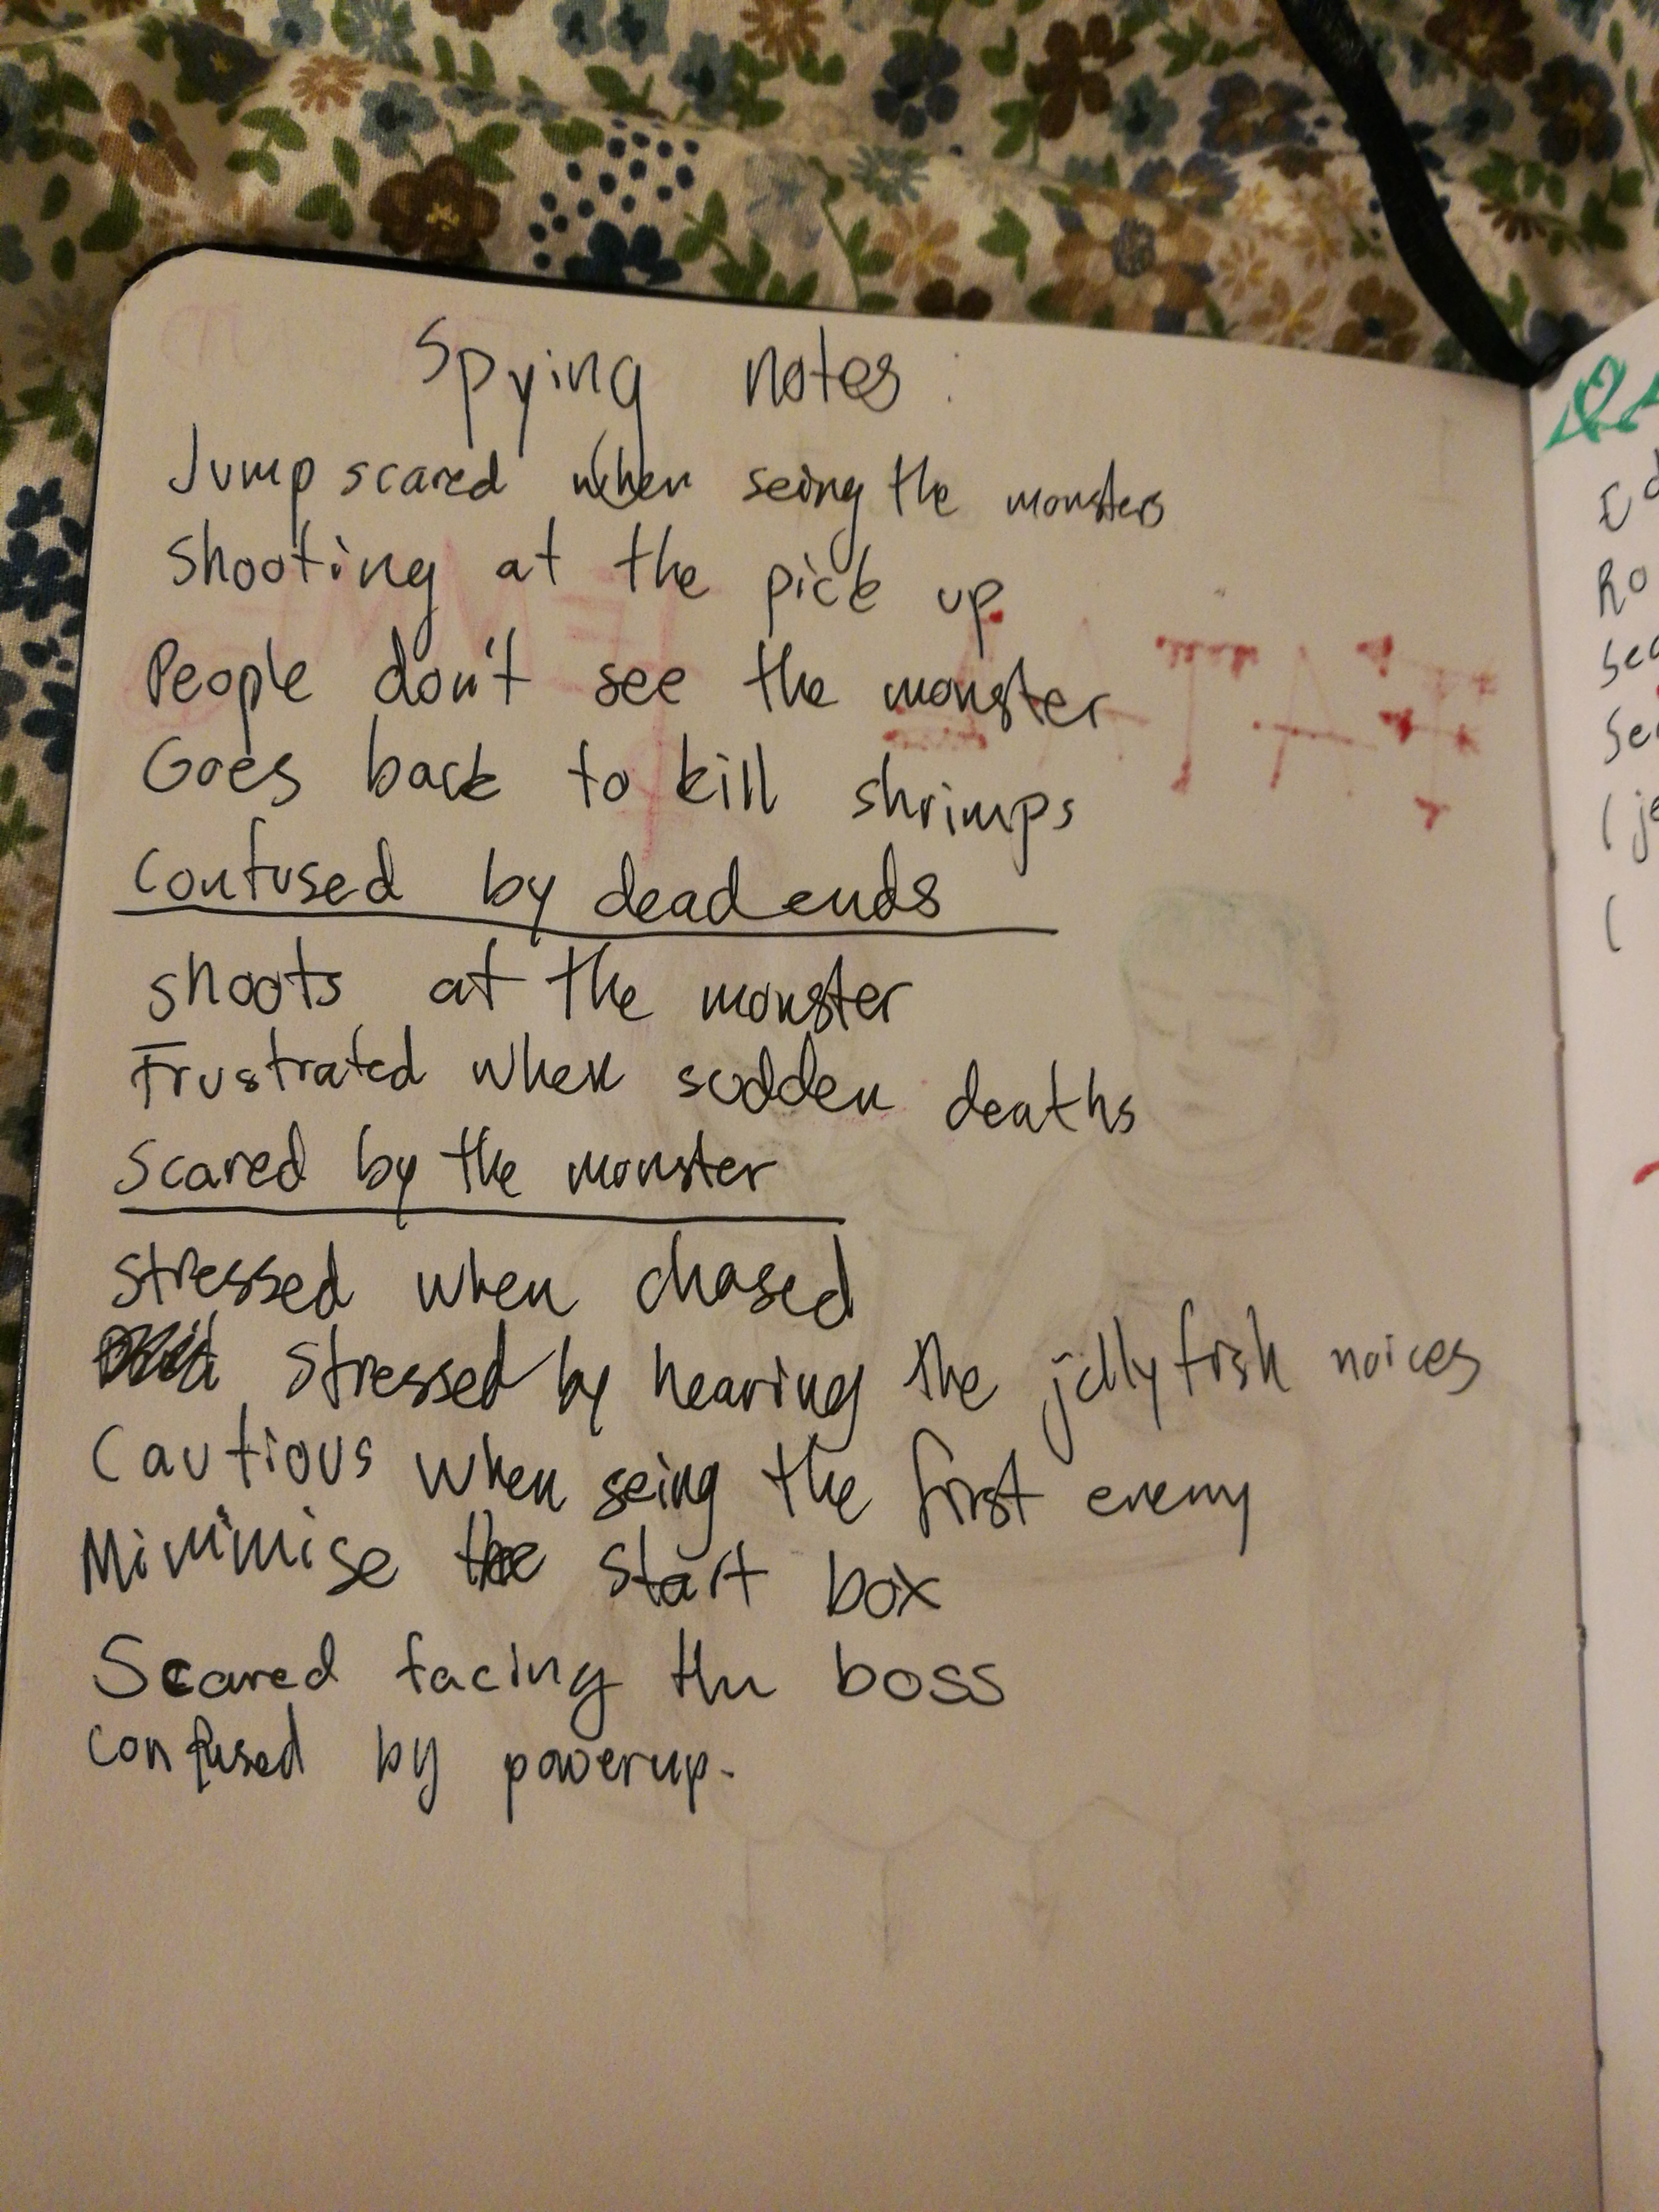 Spying notes:
Jump scared when seing the monsters
Shooting at the pick up
People don't see the monster
Goes back to kill shrimps
Confused by dead ends
shoots at the monster
Frustrated when sudden deaths
Scared by the monster
stressed when chased
stressed by hearing the jellyfish noices
Cautious when seing the first enemy
Minimise the start box
Scared facing the boss
confused by powerup.